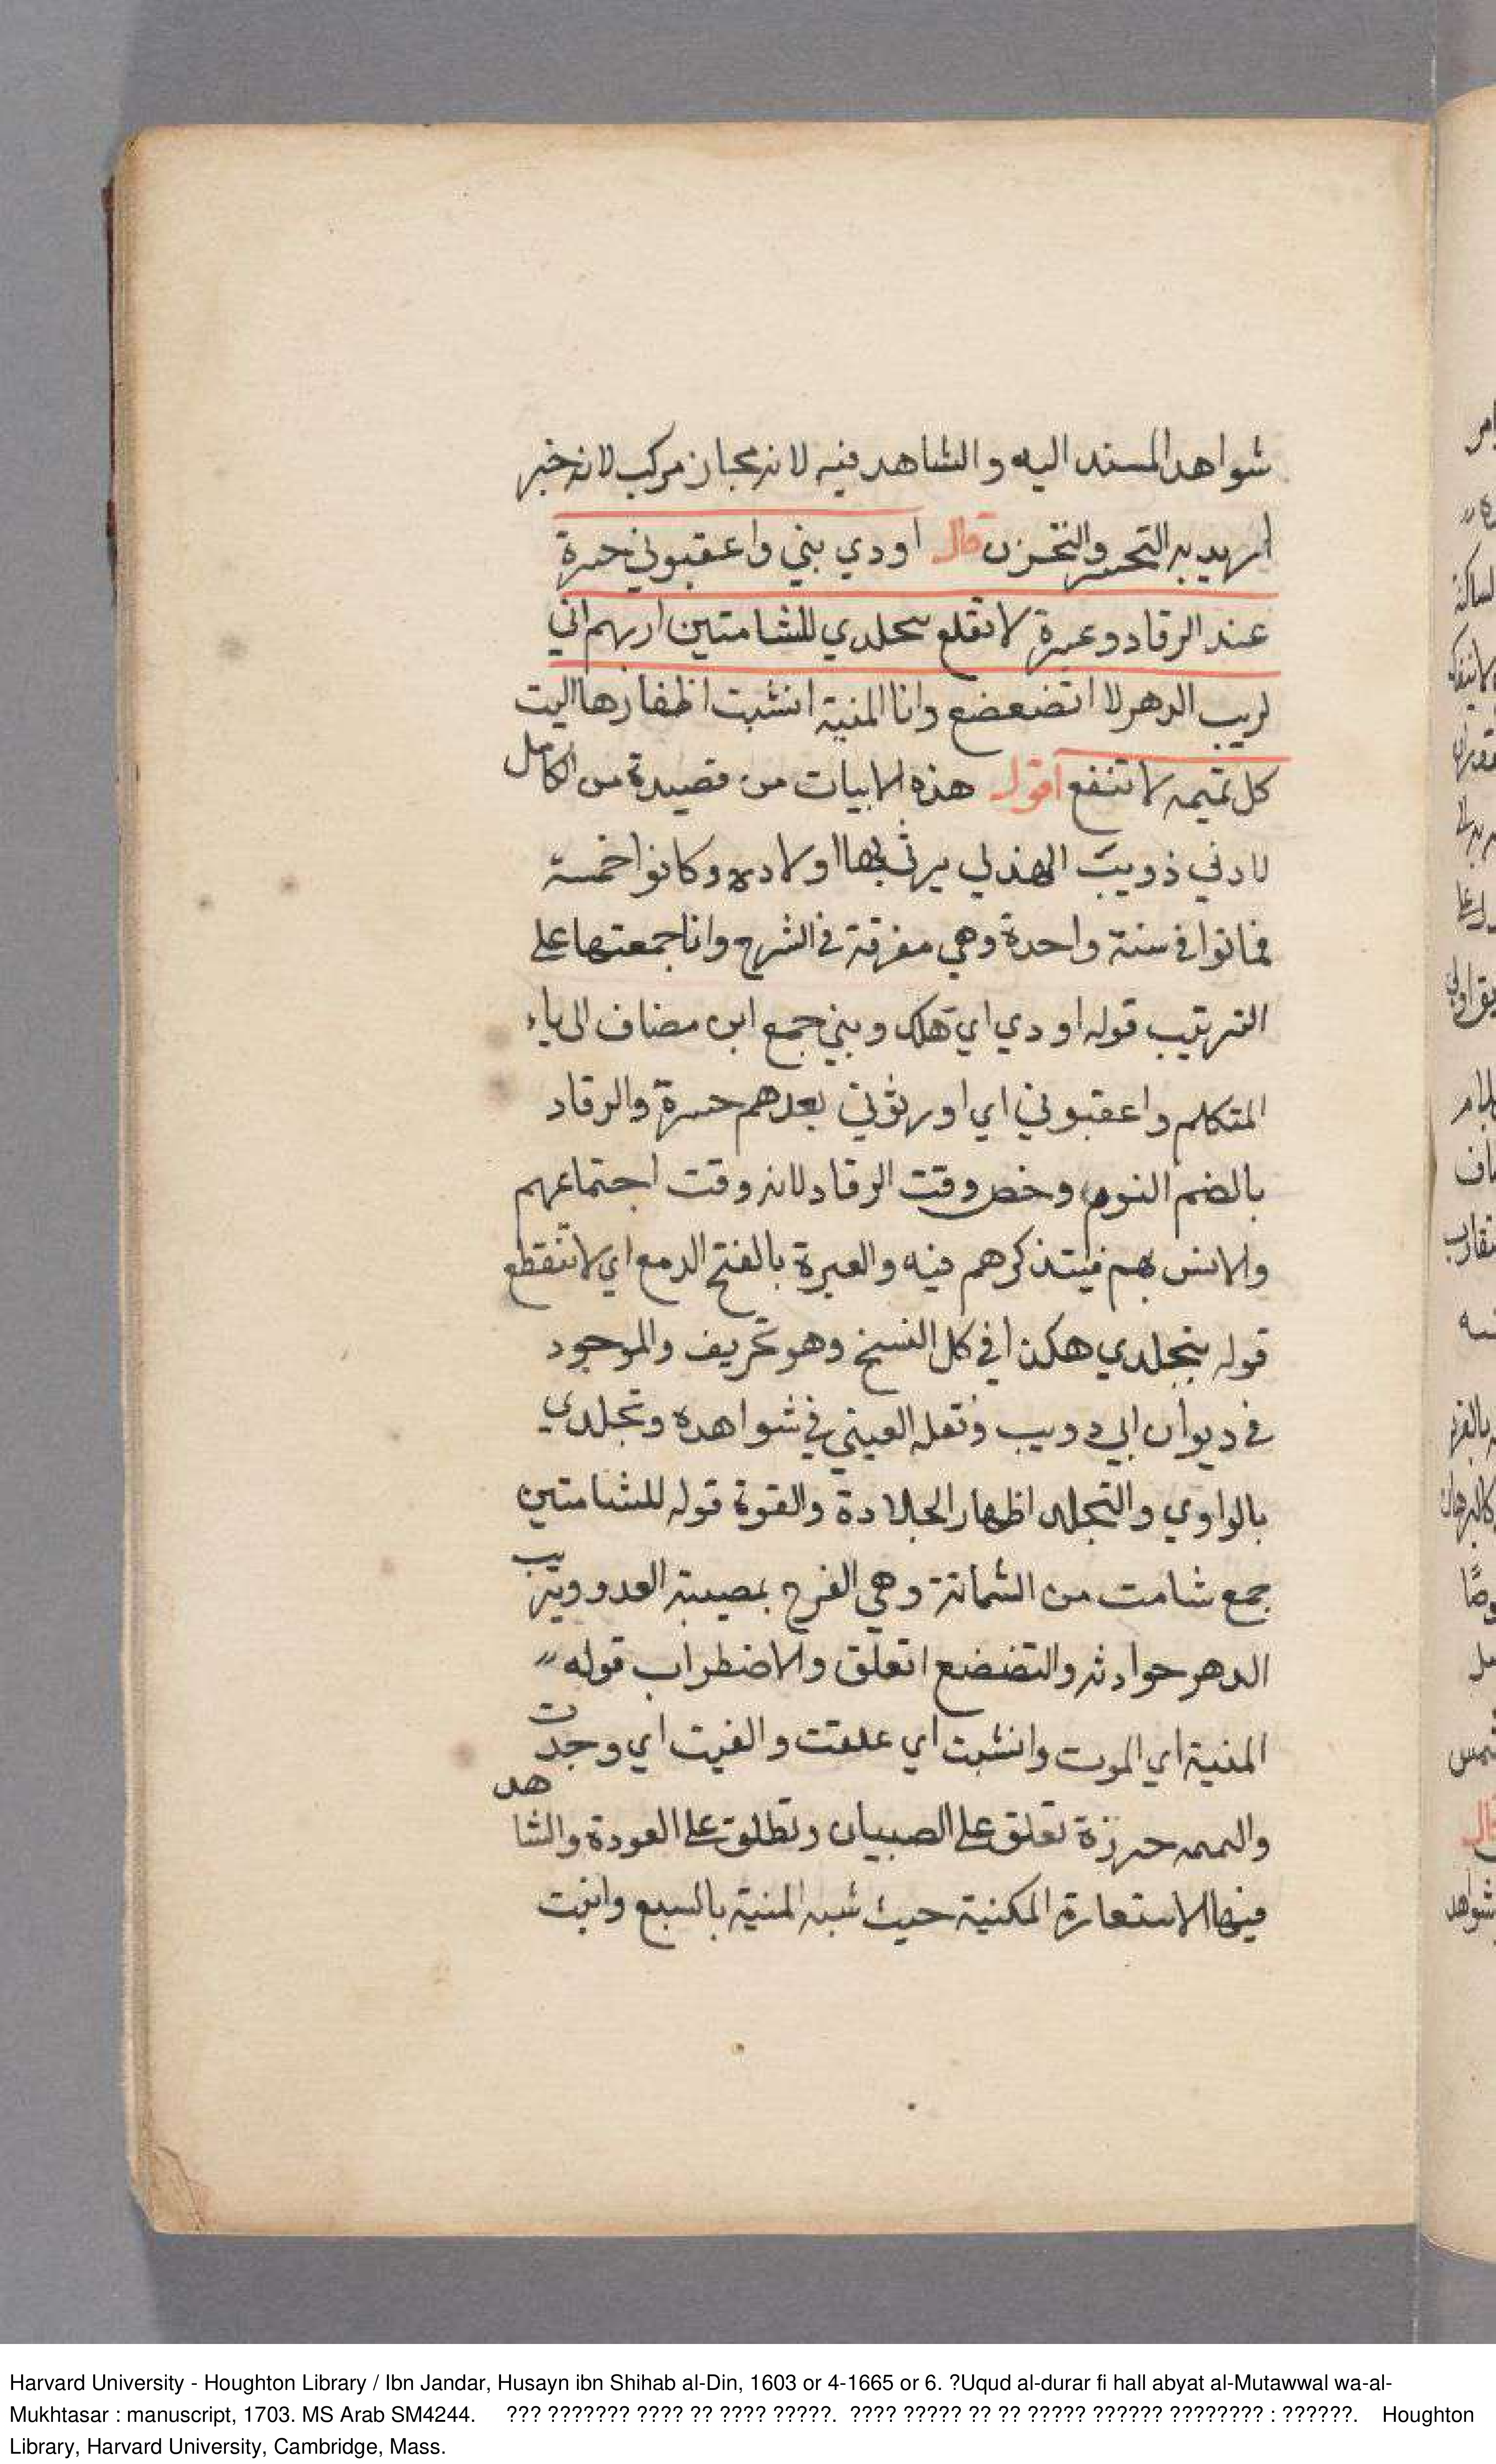 شواهد المسند اليه والشاهد فيه لانه مجاز مركب لانه خبر
اريد به التحسر والتحزن قال اودي بني واعقبوني حسرة
عند الرقاد وعبرة لا تقلع بتجلدي للشامتين اريهم اني
لريب الدهر لا اتضعضع وانا المنية انشبت اظفارها اليت
كل تميمه لا تنفع اقول هذه الابيات من قصيدة من الكامل
ذويب الهذلي يرثي بها اولاده وكانوا خمسة
فماتوا في سنة واحدة وهي مفرقة في الشرح وانا جمعتها على
الترتيب قوله اودي اي هلك وبني جمع ابن مضاف الى ياء
المتكلم واعقبوني اي اورثوني بعدهم حسرة والرقاد
بالضم النوم وخص وقت الرقاد لانه وقت اجتماعهم
والانس بهم فيتذكرهم فيه والعبرة بالفتح الدمع اي لا تنقطع
قوله بتجلدي هكذا في كل النسخ وهو تحريف والموجود
في ديوان ابي دويب ونقله العيني في شواهده وتجلدي
بالواوي والتجلد اظهار الجلادة والقوة قوله للشامتين
جمع شامت من الشماتة وهي الفرح بمصيبة العدو وريب
الدهر حوادثه والتضضع اتعلق والاضطراب قوله
المنية اي الموت وانشبت اي علقت والفيت اي وجدت
والتميمه خرزة تعلق على الصبيان وتطلق على العودة والشاهد
فيها الاستعارة المكنية حيث شبه المنية بالسبع واثبت
Harvard University - Houghton Library / Ibn Jandar, Husayn ibn Shihab al-Din, 1603 or 4-1665 or 6. ?Uqud al-durar fi hall abyat al-Mutawwal wa-al-
Mukhtasar : manuscript, 1703. MS Arab SM4244. ??? ??????? ???? ?? ???? ?????. ???? ????? ?? ?? ????? ?????? ???????? : ??????. Houghton
Library, Harvard University, Cambridge, Mass.